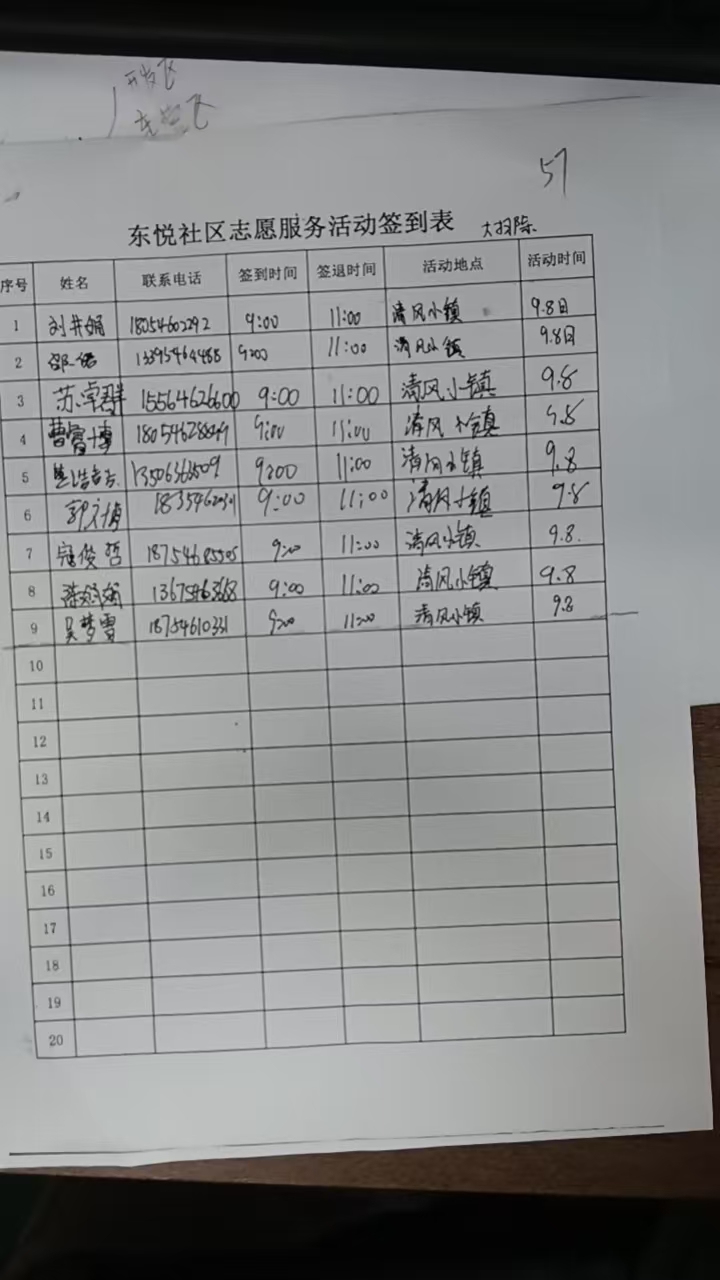 开发区
57
东悦社区志愿服务活动签到表 大扫除
序号 姓名 联系电话 签到时间 签退时间 活动地点 活动时间
1 刘井娟 18054602292 9:00 11:00 清风小镇 9.8日
2 13395464488 9:00 11:00 清风小镇 9.8日
3 苏卓群 15564626600 9:00 11:00 清风小镇 9.8
4 曹富博 9:00 11:00 清风小镇 9.8
5 13506363509 9:00 11:00 清风小镇 9.8
6 9:00 11:00 清风小镇 9.8
7 寇俊哲 18754685505 9:00 11:00 清风小镇 9.8.
8 9:00 11:00 清风小镇 9.8
9 吴梦雪 18754610331 9:00 11:00 清风小镇 9.8
10
11
12
13
14
15
16
17
18
19
20